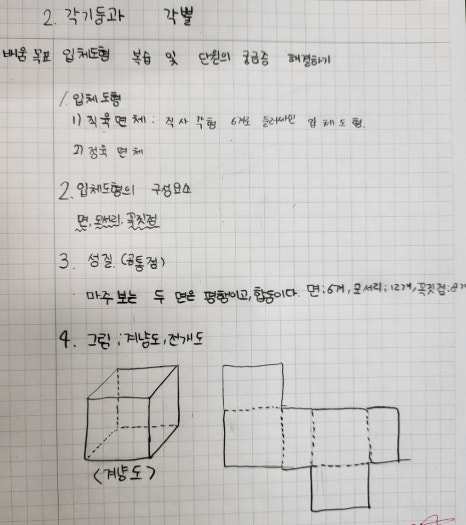 2. 각기둥과 각뿔
배움 목표 입체도형 복습 및 단원의 궁금증 해결하기
1. 입체도형
1) 직육면체 : 직사각형 6개로 둘러싸인 입체도형.
2) 정육면체
2. 입체도형의 구성요소
면, 모서리, 꼭짓점
3. 성질 (공통점)
마주 보는 두 면은 평행이고, 합동이다. 면 : 6개, 모서리 : 12개, 꼭짓점 : 8개
4. 그림 : 겨냥도, 전개도
<겨냥도>